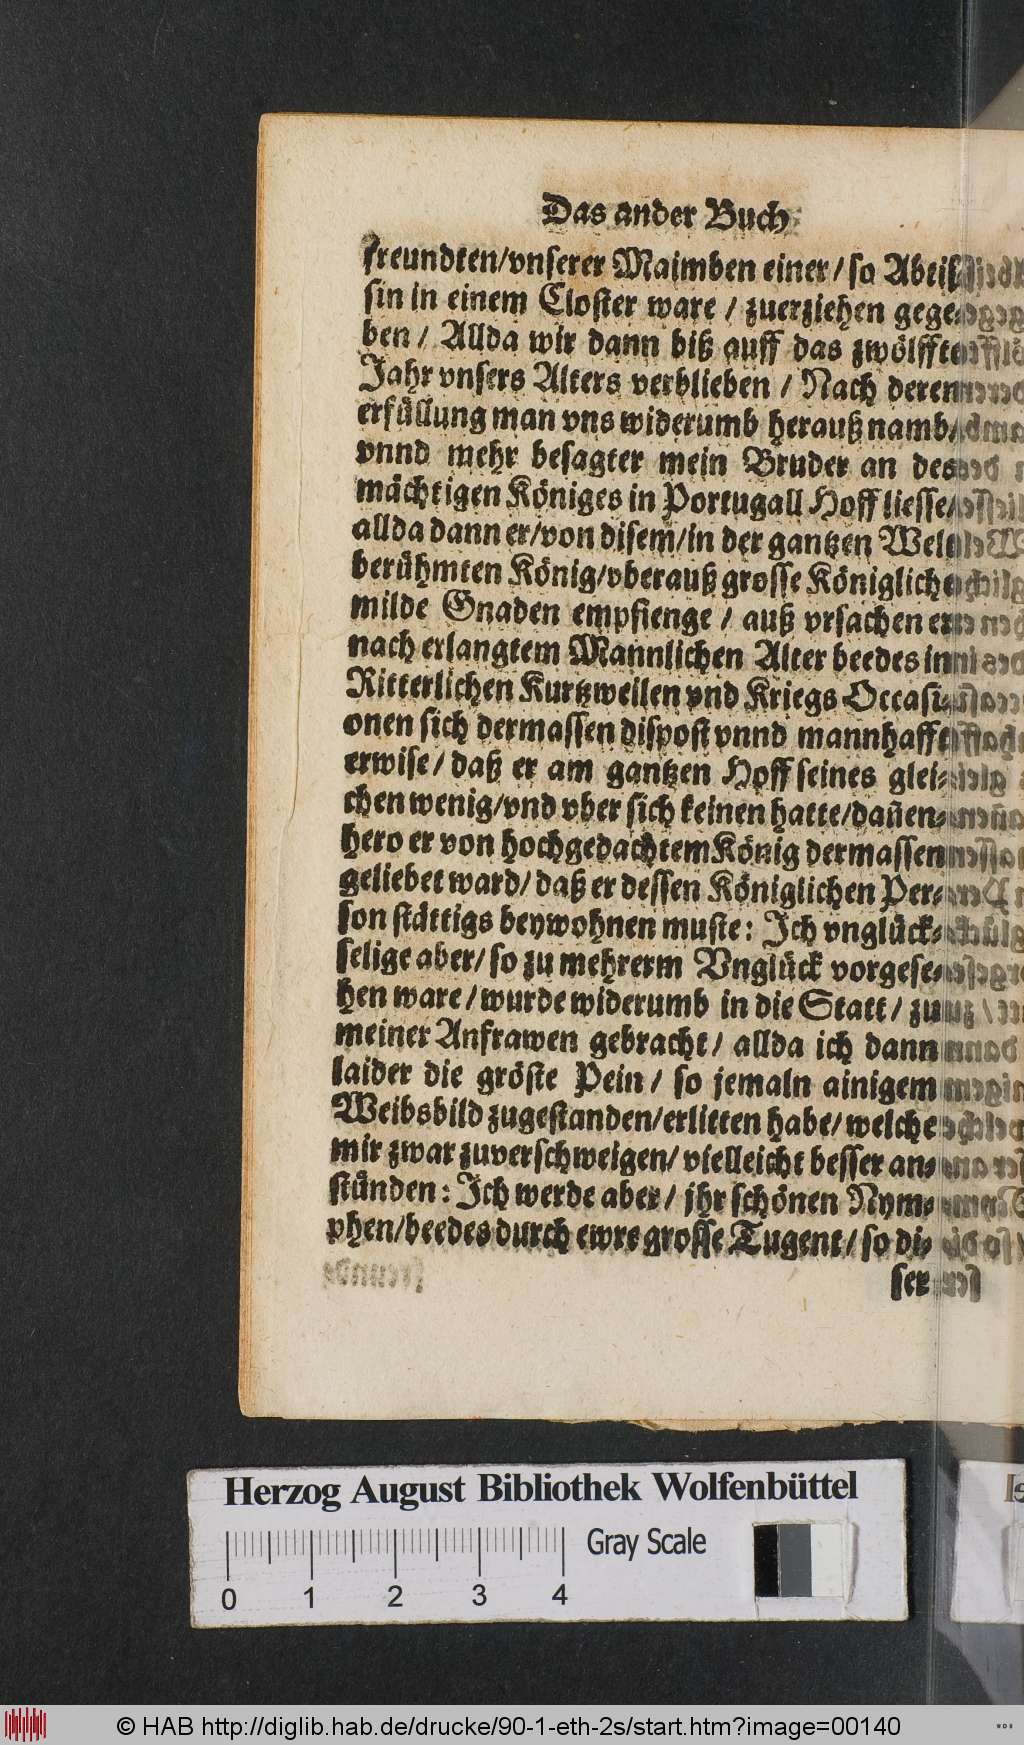 Das ander Buch
freundten/vnserer Maimben einer/so Abtis-
sin in einem Closter ware / zuerziehen gege-
ben / Allda wir dann biß auff das zwölffte
Jahr vnsers Alters verblieben / Nach deren
erfüllung man vns widerumb herauß namb/
vnnd mehr besagter mein Bruder an des
mächtigen Königes in Portugall Hoff liesse/
allda dann er/von disem/in der gantzen Welt
berühmten König/vberauß grosse Königliche
milde Gnaden empfienge / auß vrsachen er
nach erlangtem Mannlichen Alter beedes in
Ritterlichen Kurtzweilen vnd Kriegs Occasi-
onen sich dermassen dispost vnnd mannhafft
erwise/ daß er am gantzen Hoff seines glei-
chen wenig/vnd vber sich keinen hatte/dañen-
hero er von hochgedachtem König dermassen
geliebet ward/ daß er dessen Königlichen Per-
son stättigs beywohnen muste: Ich vnglück-
selige aber/ so zu mehrerm Vnglück vorgese-
hen ware / wurde widerumb in die Statt / zu
meiner Anfrawen gebracht/ allda ich dann
laider die gröste Pein / so jemaln ainigem
Weibsbild zugestanden/erlitten habe/ welche
mir zwar zuverschweigen/ vielleicht besser an-
stünden: Ich werde aber/ jhr schönen Nym-
phen/beedes durch ewre grosse Tugent/ so di-
ser
Herzog August Bibliothek Wolfenbüttel
Gray Scale
0 1 2 3 4
© HAB http://diglib.hab.de/drucke/90-1-eth-2s/start.htm?image=00140